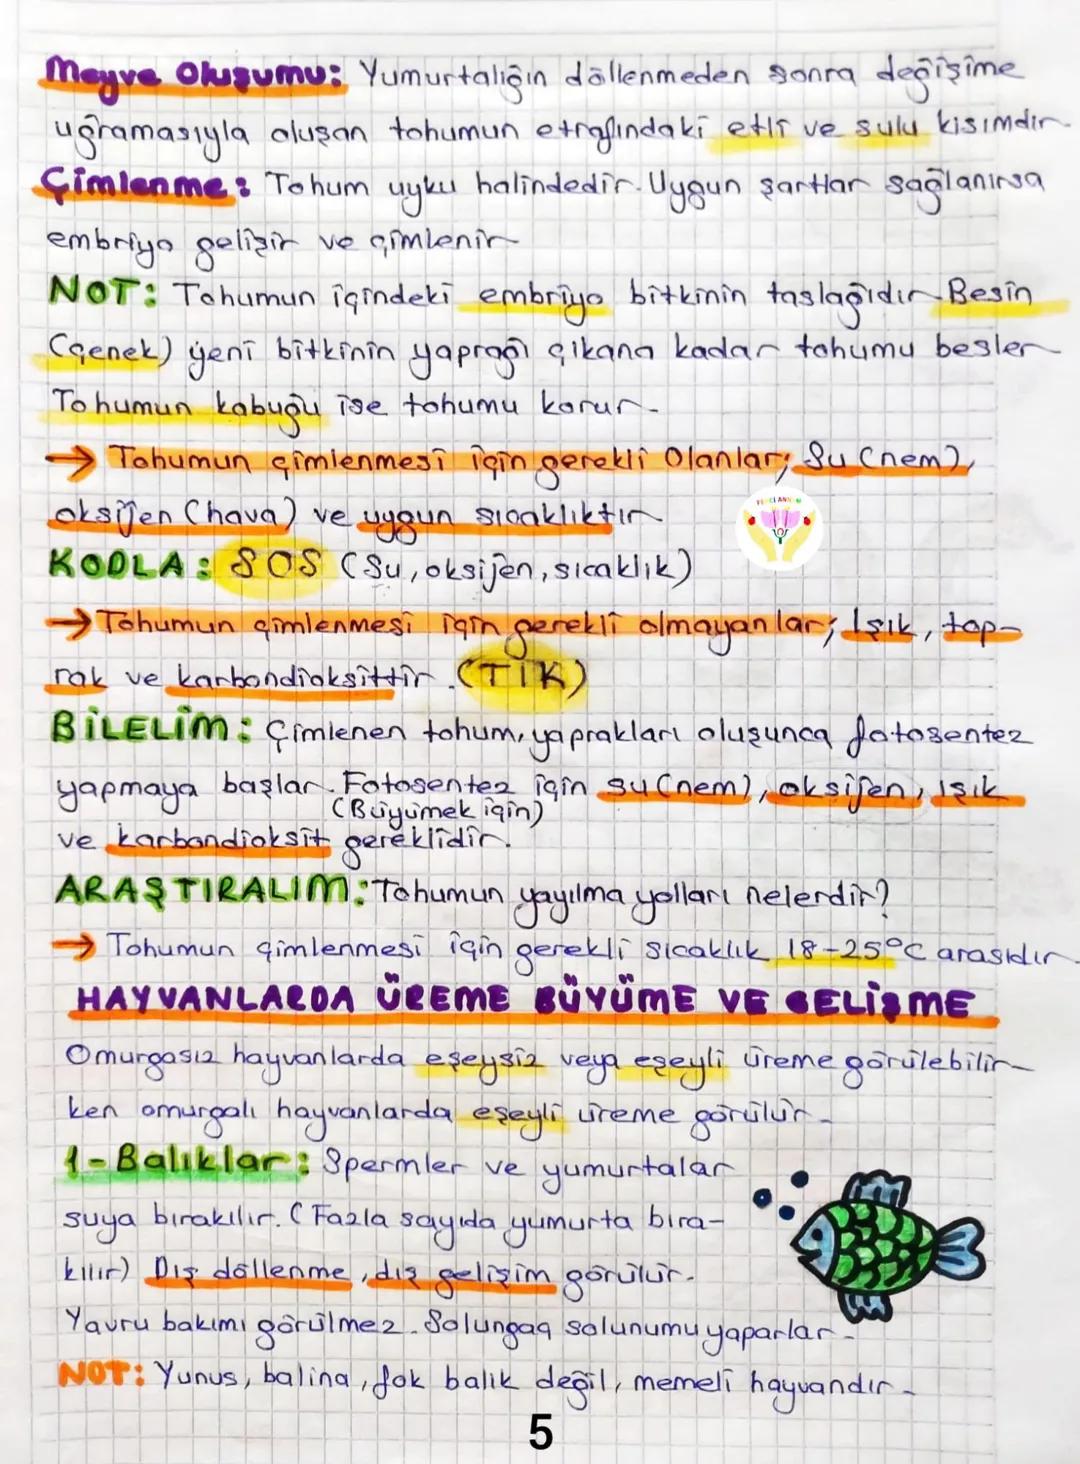 Meyve Oluşumu: Yumurtalığın döllenmeden sonra değişime
uğramasıyla oluşan tohumun etrafındaki etli ve sulu kısımdır.
Çimlenme: Tohum uyku halindedir. Uygun şartlar sağlanırsa
embriyo gelişir ve çimlenir.
NOT: Tohumun içindeki embriyo bitkinin taslağıdır. Besin
(çenek) yeni bitkinin yaprağı çıkana kadar tohumu besler.
Tohumun kabuğu ise tohumu korur.
→ Tohumun çimlenmesi için gerekli Olanlar; Su (nem),
oksijen (hava) ve uygun sıcaklıktır.
KODLA: SOS (Su, oksijen, sıcaklık)
→ Tohumun çimlenmesi için gerekli olmayanlar; Işık, top-
rak ve karbondioksittir. (TIK)
BİLELİM: Çimlenen tohum, yaprakları oluşunca fotosentez
yapmaya başlar. Fotosentez için su (nem), oksijen, ışık
(Büyümek için)
ve karbondioksit gereklidir.
ARAŞTIRALIM: Tohumun yayılma yolları nelerdir?
→ Tohumun çimlenmesi için gerekli sıcaklık 18-25°C arasıdır.
HAYVANLARDA ÜREME BÜYÜME VE GELİŞME
Omurgasız hayvanlarda eşeysiz veya eşeyli üreme görülebilir-
ken omurgalı hayvanlarda eşeyli üreme görülür.
1-Balıklar: Spermler ve yumurtalar
suya bırakılır. (Fazla sayıda yumurta bıra-
kılır) Dış döllenme, dış gelişim görülür.
Yavru bakımı görülmez. Solungaç solunumu yaparlar.
NOT: Yunus, balina, fok balık değil, memeli hayvandır.
5